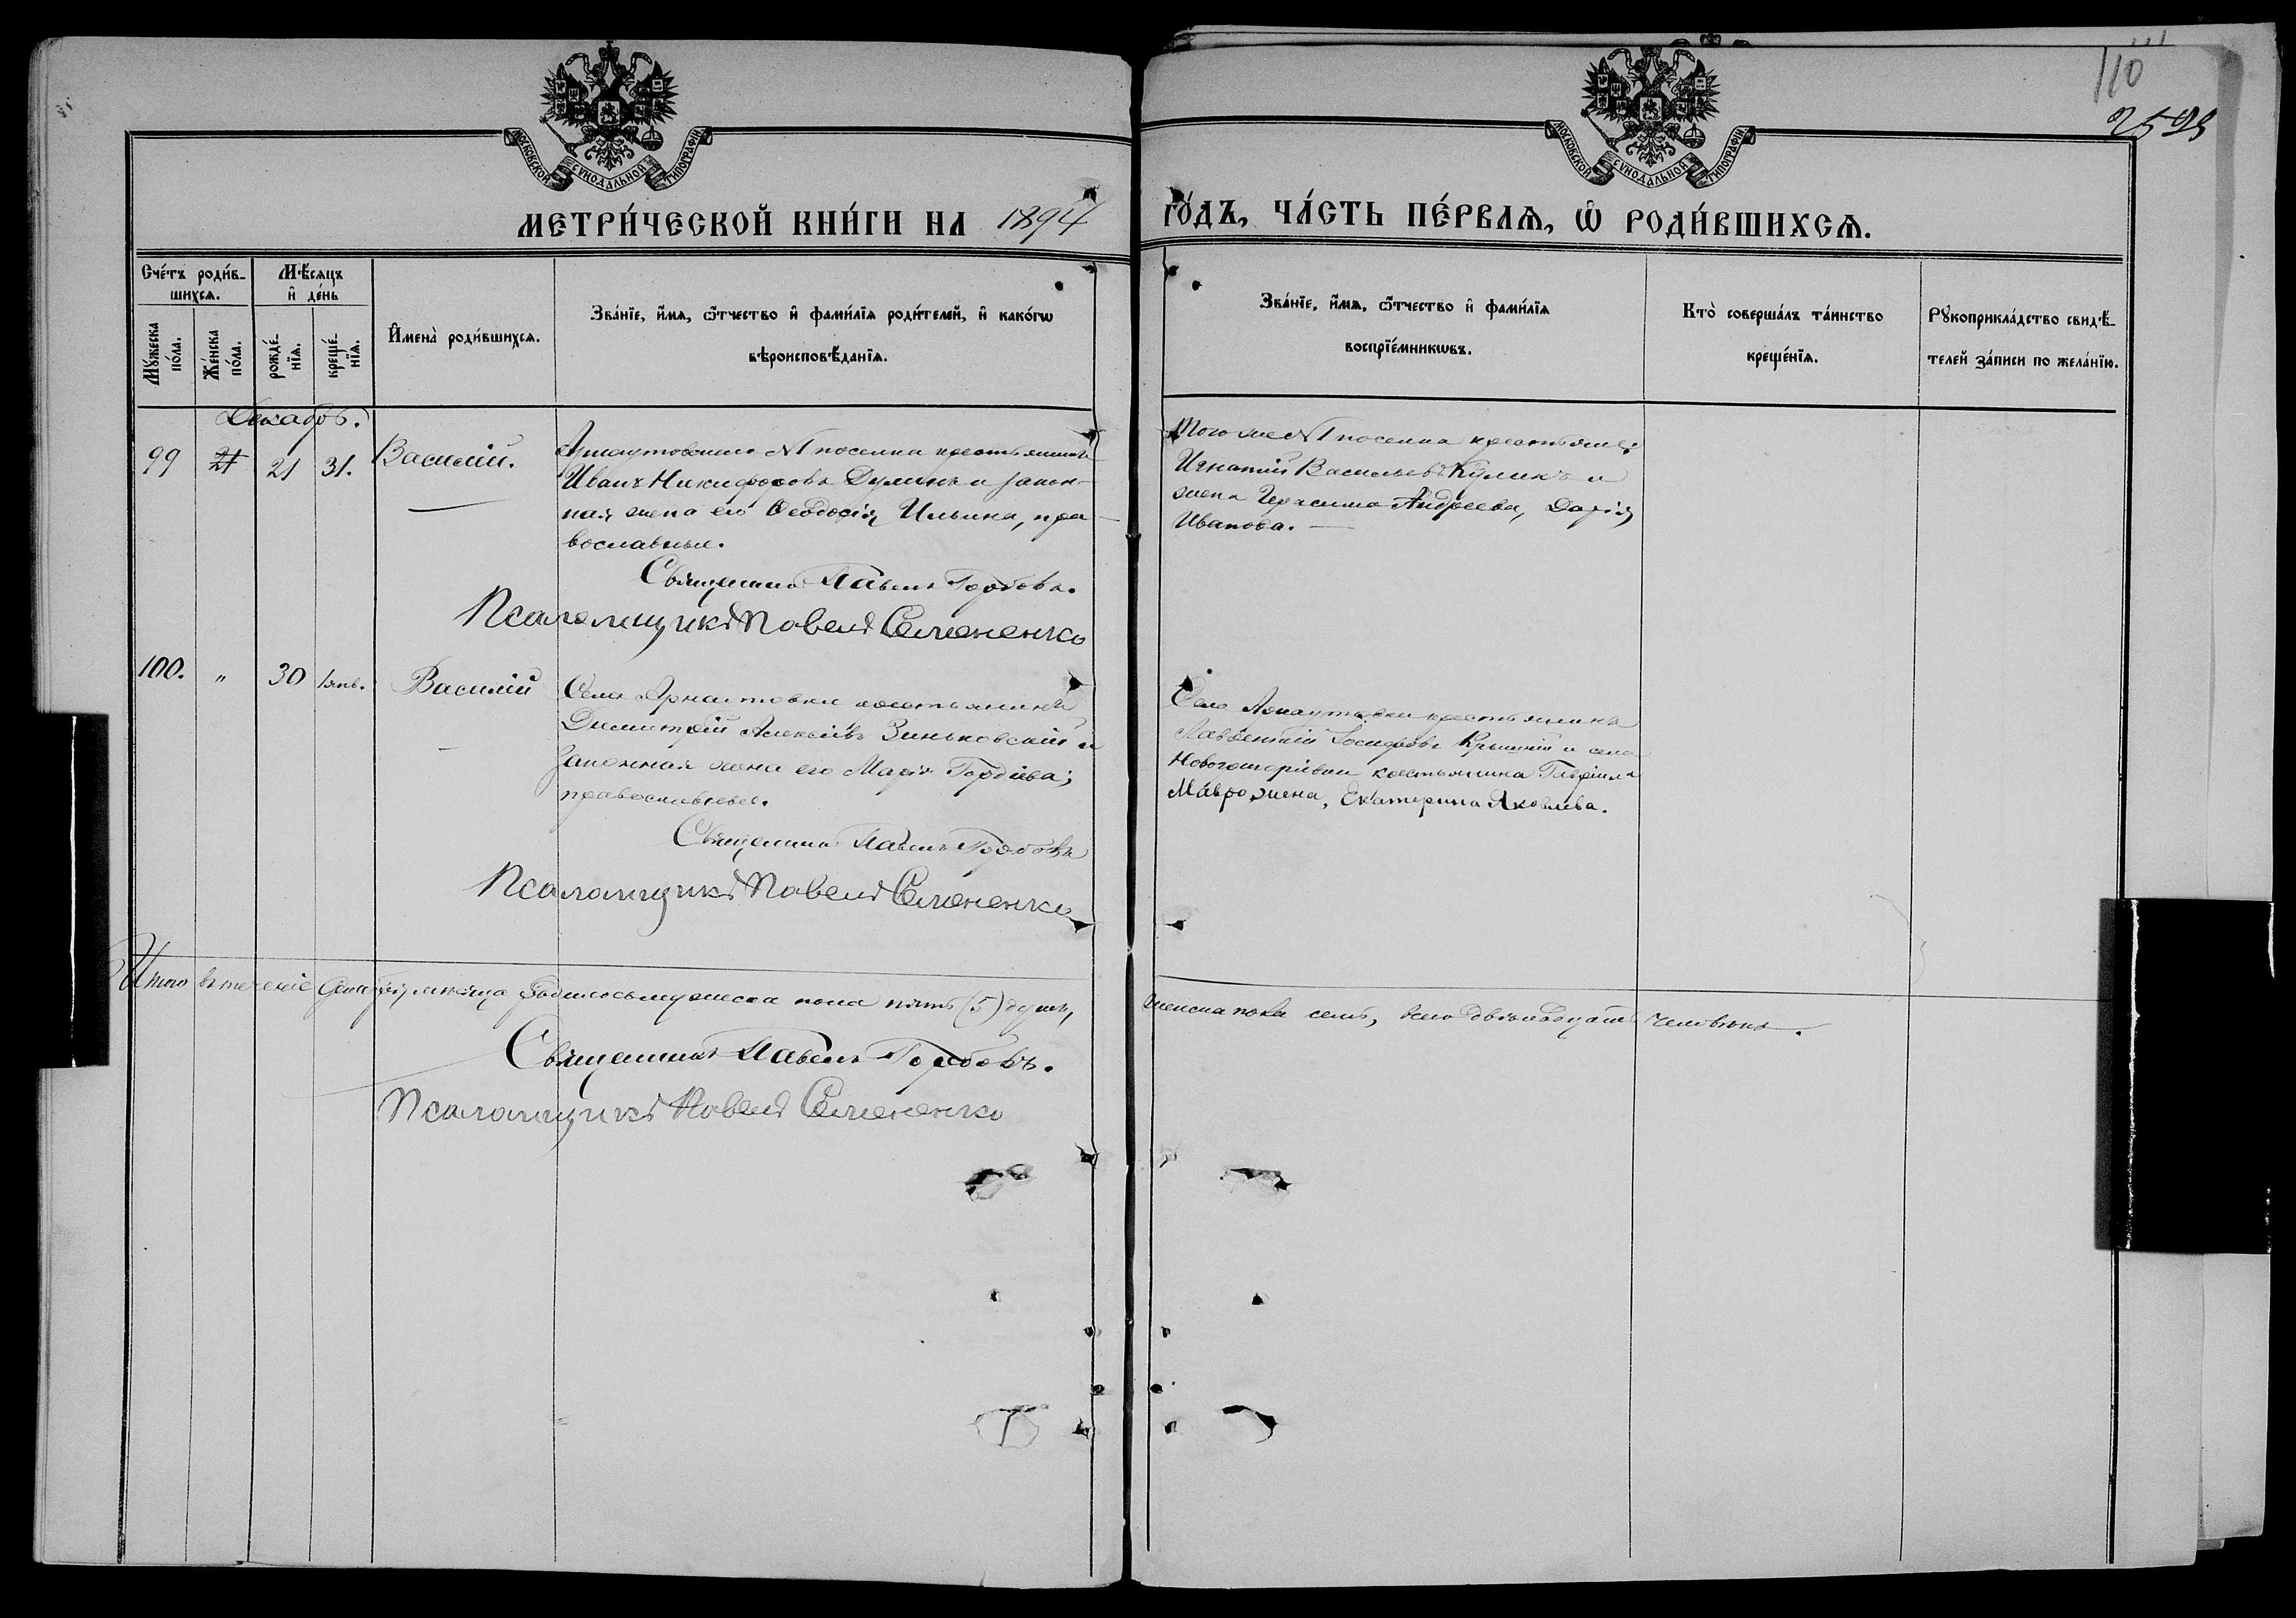 110
2599
МОСКОВСКОЙ СУНОДАЛЬНОЙ ТИПОГРАФІИ
МОСКОВСКОЙ СУНОДАЛЬНОЙ ТИПОГРАФІИ
МЕТРИ́ЧЕСКОЙ КНИ́ГИ НА 1894 ГО́ДЪ, ЧА́СТЬ ПЕ́РВАѦ, Ѿ РОДИ́ВШИХСѦ.
Сче́тъ роди́в-
шихсѧ.
Мꙋ́жеска по́ла.
Же́нска по́ла.
Мѣ́сѧцъ
и҆ де́нь
рожде́-
нїѧ.
креще́-
нїѧ.
И҆мена̀ роди́вшихсѧ.
Зва́нїе, и҆́мѧ, ѻ҆́тчество и҆ фами́лїѧ роди́телей, и҆ како́гѡ
вѣроисповѣ́данїѧ.
Зва́нїе, и҆́мѧ, ѻ҆́тчество и҆ фами́лїѧ
воспрїе́мникѡвъ.
Кто̀ соверша́лъ та́инство
креще́нїѧ.
Рꙋкоприкла́дство свидѣ́-
телей за́писи по жела́нїю.
Декабрь.
99 21 21 31. Василій.
Арнаутовскаго №1 поселка крестьянинъ
Иванъ Никифоровъ Дулинъ и закон-
ная жена его Ѳеодосія Ильина, пра-
вославные.
Священникъ Павелъ Горбовъ.
Псаломщикъ Павелъ Семененко
Того же №1 поселка крестьяне:
Игнатій Васильевъ Куликъ и
жена Герасима Андреева, Дарія
Иванова.
100. " 30 1 янв. Василій
Села Арнаутовки крестьянинъ
Димитрій Алексѣевъ Зиньковскій и
законная жена его Марія Гордіева;
православные.
Священникъ Павелъ Горбовъ
Псаломщикъ Павелъ Семененко
Села Арнаутовки крестьянинъ
Лаврентій Іосифовъ и села
Новогригорьевки крестьянина Гавріила
Мавро, жена, Екатерина Яковлева.
Итого въ теченіе Декабря мѣсяца родилось мужеска пола пять (5) душъ, женска пола семь, всего двѣнадцать человѣкъ.
Священникъ Павелъ Горбовъ.
Псаломщикъ Павелъ Семененко